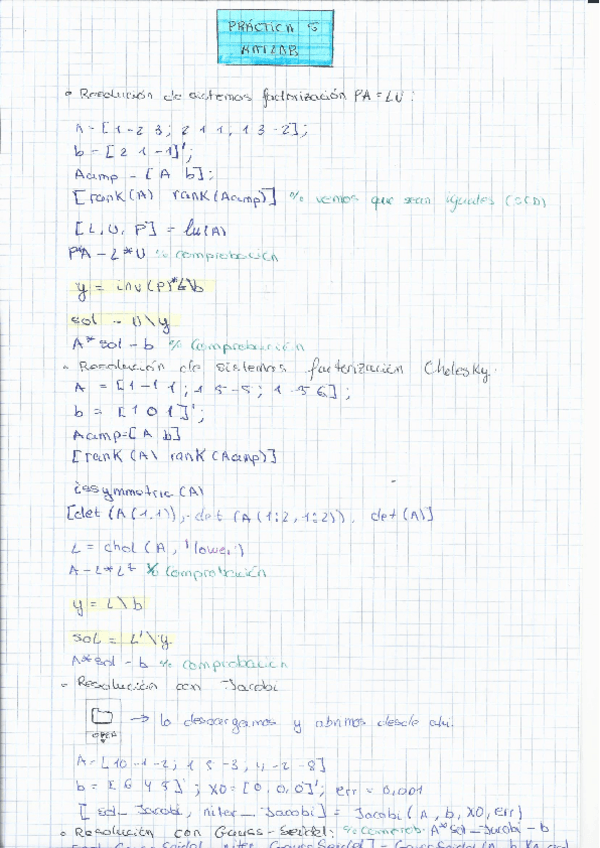 PRÁCTICA 5
MATLAB
• Resolución de sistemas factorización PA=LU:
A=[1 -2 3; 2 1 1, 1 3 -2];
b=[2 1 -1]';
Aamp = [A b];
[rank(A) rank(Aamp)] % vemos que sean iguales (SCD)
[L, U, P] = lu(A)
P*A - L*U % comprobación
y = inv(P)*L\b
sol = U\y
A*sol - b % Comprobación
• Resolución de sistemas factorización Cholesky.
A = [1 -1 1; 1 5 -5; 1 -5 6];
b = [1 0 1]';
Aamp=[A b]
[rank(A) rank(Aamp)]
issymmetric(A)
[det(A(1,1)), det(A(1:2,1:2)), det(A)]
L = chol(A, 'lower')
A-L*L' % Comprobación
y = L\b
sol = L'\y
A*sol - b % comprobación
• Resolución con Jacobi
→ lo descargamos y abrimos desde ahí.
OPEN
A=[10 -1 -2; 1 5 -3, 4 -2 -8]
b = [6 4 5]'; X0=[0,0,0]'; err = 0,001
[sol_Jacobi, niter_Jacobi] = Jacobi(A, b, X0, err)
• Resolución con Gauss-Seidel: % comprob. A*sol_Jacobi - b